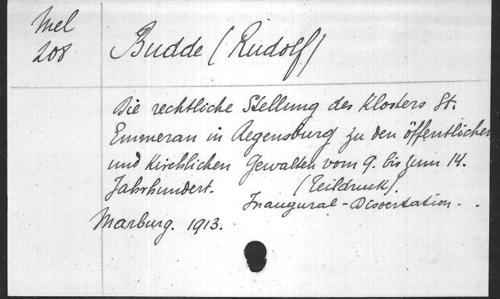 Mel
208
Budde (Rudolf)
Die rechtliche Stellung des Klosters St.
Emmeran in Regensburg zu den öffentlichen
und kirchlichen Gewalten vom 9. bis zum 14.
Jahrhundert. (Teildruck).
Inaugural-Dissertation.
Marburg. 1913.